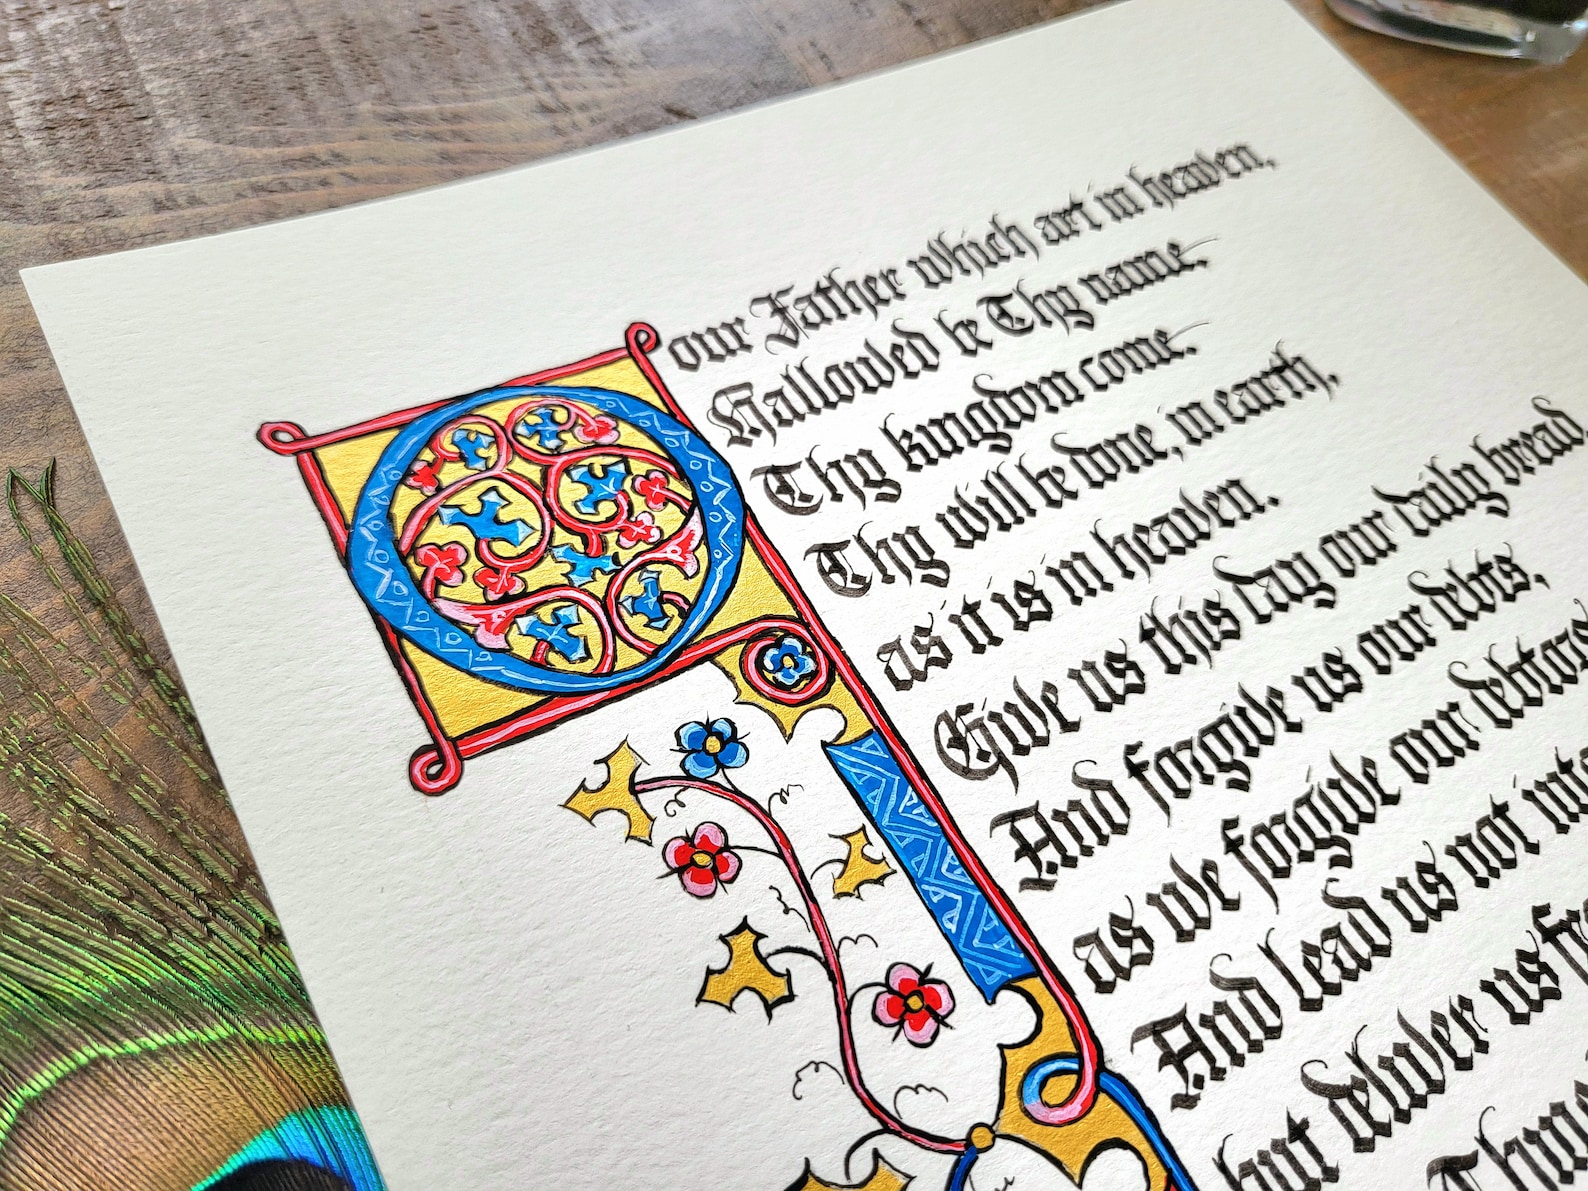 O our Father which art in heaven,
Hallowed be Thy name.
Thy kingdom come.
Thy will be done, in earth,
as it is in heaven.
Give us this day our daily bread,
And forgive us our debts,
as we forgive our debtors
And lead us not into
but deliver us
Thine